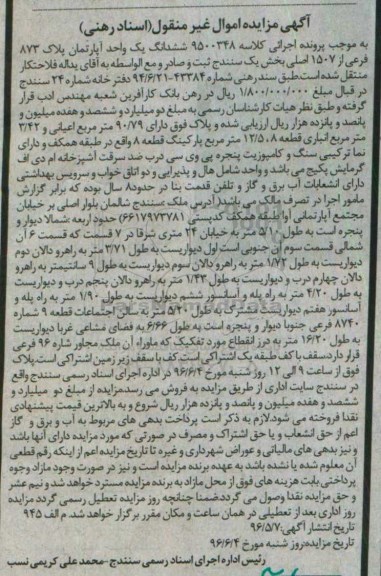 آگهی مزایده اموال غیر منقول(اسناد رهنی)
به موجب پرونده اجرائی کلاسه ۹۵۰۰۳۴۸ ششدانگ یک واحد آپارتمان پلاک ۸۷۳
فرعی از ۱۵۰۷ اصلی بخش یک سنندج ثبت و صادر و مع الواسطه به آقای یداله فلاحتکار
منتقل شده است.طبق سند رهنی شماره ۴۳۳۸۴-۹۴/۶/۲۱ دفتر خانه شماره ۲۴ سنندج
در قبال مبلغ ۱/۸۰۰/۰۰۰/۰۰۰ ریال در رهن بانک کارآفرین شعبه مهندس ادب قرار
گرفته و طبق نظر هیات کارشناسان رسمی به مبلغ دو میلیارد و ششصد و هفده میلیون و
پانصد و پانزده هزار ریال ارزیابی شده و پلاک فوق دارای ۹۰/۷۹ متر مربع اعیانی و ۳/۴۲
متر مربع انباری قطعه ۸، ۱۲/۵ متر مربع پارکینگ قطعه ۸ واقع در طبقه همکف و دارای
نما ترکیبی سنگ و کامپوزیت پنجره پی وی سی درب ضد سرقت آشپزخانه ام دی اف
گرمایش پکیج می باشد و واحد شامل هال و پذیرایی و دو اتاق خواب و سرویس بهداشتی
دارای انشعابات آب برق و گاز و تلفن قدمت بنا در حدود۸ سال بوده که برابر گزارش
مامور اجرا در تصرف مالک می باشد(آدرس ملک :سنندج شالمان بلوار اصلی بر خیابان
مجتمع آپارتمانی آوا طبقه همکف کدپستی ۶۶۱۷۹۷۳۷۸۱) حدود اربعه :شمالا دیوار و
پنجره است به طول ۵/۱۰ متر به خیابان ۲۴ متری شرقا در ۷ قسمت که قسمت ۶ آن
شمالی قسمت سوم آن جنوبی است اول دیواریست به طول ۳/۷۱ متر به راهرو دالان دوم
دیواریست به طول ۱/۷۲ متر به راهرو دالان سوم دیواریست به طول ۹ سانتیمتر به راهرو
دالان چهارم درب و دیواریست به طول ۱/۴۳ متر به راهرو دالان پنجم درب و دیواریست
به طول ۴/۲۰ متر به راه پله و آسانسور ششم دیواریست به طول ۱/۹۰ متر به راه پله و
آسانسور هفتم دیواریست مشترک به طول ۵/۲۰ متر به سالن اجتماعات قطعه ۹ شماره
۸۷۴۰ فرعی جنوبا دیوار و پنجره است به طول ۶/۶۶ به فضای مشاعی غربا دیواریست
به طول ۱۶/۲۰ متر به درز انقطاع مورد تفکیک که ماوراء آن ملک مجاور شاره ۹۶ فرعی
قرار دارد.سقف با کف طبقه یک اشتراکی است کف با سقف زیر زمین اشتراکی است.پلاک
فوق از ساعت ۹ الی ۱۲ روز شنبه مورخ ۹۶/۶/۴ در اداره اجرای اسناد رسمی سنندج واقع
در سنندج سایت اداری از طریق مزایده به فروش می رسد.مزایده از مبلغ دو میلیارد و
ششصد و هفده میلیون و پانصد و پانزده هزار ریال شروع و به بالاترین قیمت پیشنهادی
نقدا فروخته می شود.لازم به ذکر است پرداخت بدهی های مربوط به آب و برق و گاز
اعم از حق انشعاب و یا حق اشتراک و مصرف در صورتی که مورد مزایده دارای آنها باشد
و نیز بدهی های مالیاتی و عوراض شهرداری و غیره تا تاریخ مزایده اعم از اینکه رقم قطعی
آن معلوم شده یا نشده باشد به عهده برنده مزایده است و نیز در صورت وجود مازاد وجوه
پرداختی بابت هزینه های فوق از محل مازاد به برنده مزایده مسترد خواهد شد و نیم عشر
و حق مزایده نقدا وصول می گردد.ضمنا چنانچه روز مزایده تعطیل رسمی گردد مزایده
روز اداری بعد از تعطیلی در همان ساعت و مکان مقرر برگزار خواهد شد. م الف ۹۴۵
تاریخ انتشار آگهی:۹۶/۵/۷
تاریخ مزایده:روز شنبه مورخ ۹۶/۶/۴
رئیس اداره اجرای اسناد رسمی سنندج-محمدعلی کریمی نسب